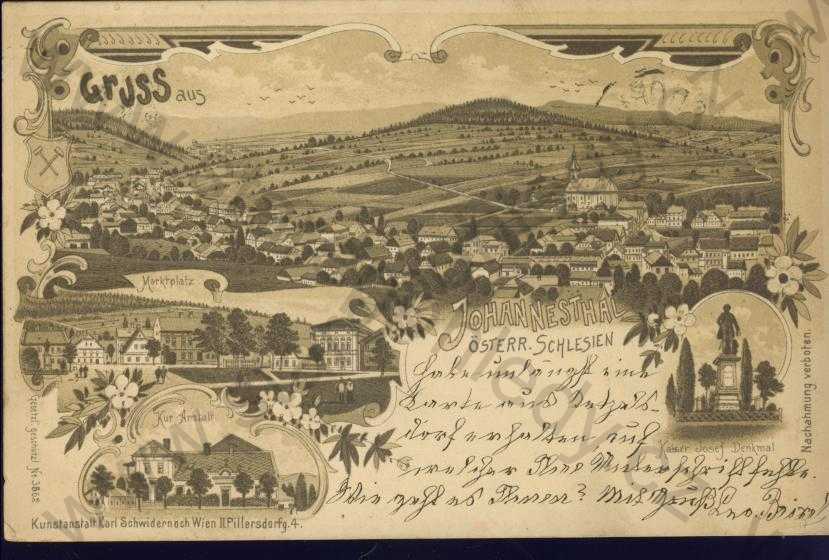 Gruss aus
Marktplatz
JOHANNESTHAL
ÖSTERR. SCHLESIEN
Kur Anstalt
Kaiser Josef Denkmal
Habe unlängst eine
Karte aus
dorf erhalten auf
welcher Ihre Unterschrift fehlte.
Wie geht es Ihnen? Mit Gruß
Gesetzl. geschützt No 3868
Nachahmung verboten.
Kunstanstalt Karl Schwidernoch Wien II. Pillersdorfg. 4.